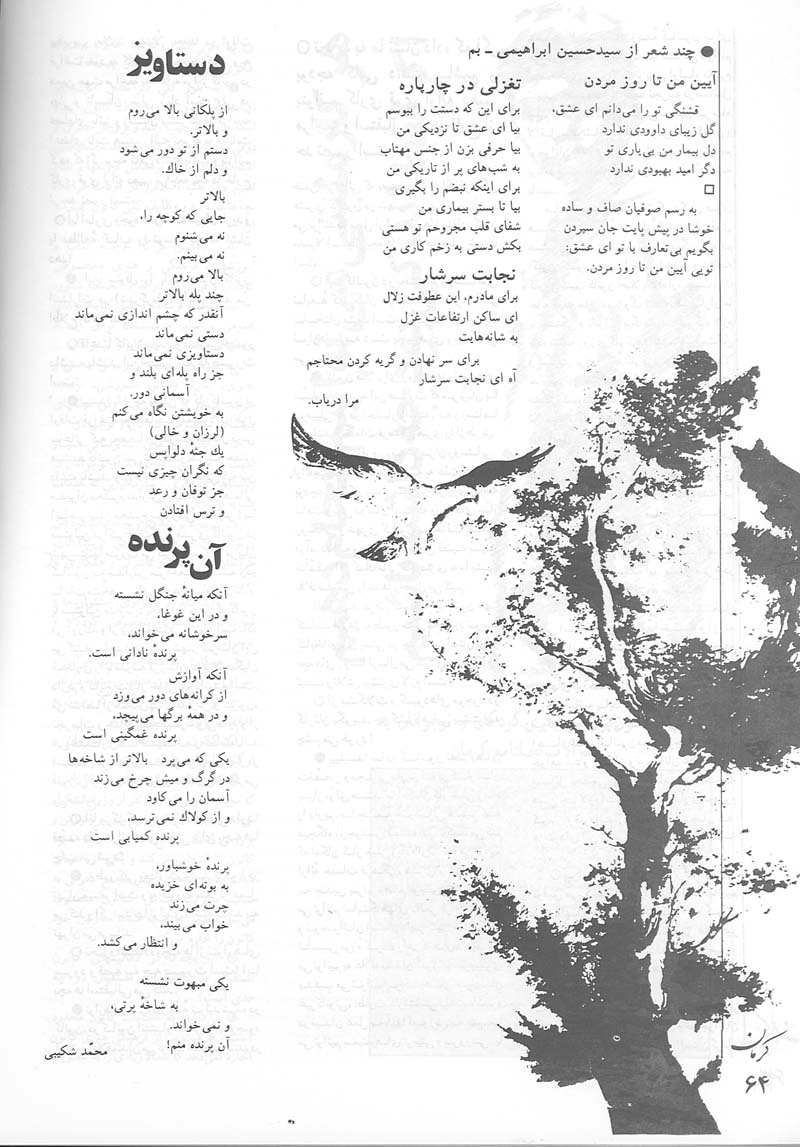 ● چند شعر از سیدحسین ابراهیمی ـ بم
آیین من تا روز مردن
قشنگی تو را می‌دانم ای عشق،
گل زیبای داوودی ندارد
دل بیمار من بی‌یاری تو
دگر امید بهبودی ندارد
□
به رسم صوفیان صاف و ساده
خوشا در پیش پایت جان سپردن
بگویم بی‌تعارف با تو ای عشق:
تویی آیین من تا روز مردن.
تغزلی در چارپاره
برای این که دستت را ببوسم
بیا ای عشق تا نزدیکی من
بیا حرفی بزن از جنس مهتاب
به شب‌های پر از تاریکی من
برای اینکه نبضم را بگیری
بیا تا بستر بیماری من
شفای قلب مجروحم تو هستی
بکش دستی به زخم کاری من
نجابت سرشار
برای مادرم، این عطوفت زلال
ای ساکن ارتفاعات غزل
به شانه‌هایت
برای سر نهادن و گریه کردن محتاجم
آه ای نجابت سرشار
مرا دریاب.
دستاویز
از پلکانی بالا می‌روم
و بالاتر.
دستم از تو دور می‌شود
و دلم از خاك.
بالاتر
جایی که کوچه را،
نه می‌شنوم
نه می‌بینم.
بالا می‌روم
چند پله بالاتر
آنقدر که چشم اندازی نمی‌ماند
دستی نمی‌ماند
دستاویزی نمی‌ماند
جز راه پله‌ای بلند و
آسمانی دور.
به خویشتن نگاه می‌کنم
(لرزان و خالی)
یك جثهٔ دلواپس
که نگران چیزی نیست
جز توفان و رعد
و ترس افتادن
آن پرنده
آنکه میانهٔ جنگل نشسته
و در این غوغا،
سرخوشانه می‌خواند،
پرندهٔ نادانی است.
آنکه آوازش
از کرانه‌های دور می‌وزد
و در همهٔ برگها می‌پیچد،
پرنده غمگینی است
یکی که می‌پرد بالاتر از شاخه‌ها
در گرگ و میش چرخ می‌زند
آسمان را می‌کاود
و از کولاك نمی‌ترسد،
پرنده کمیابی است
پرندهٔ خوشباور،
به بوته‌ای خزیده
چرت می‌زند
خواب می‌بیند،
و انتظار می‌کشد.
یکی مبهوت نشسته
به شاخهٔ پرتی،
و نمی‌خواند.
آن پرنده منم!
محمّد شکیبی
کرمان
۶۴